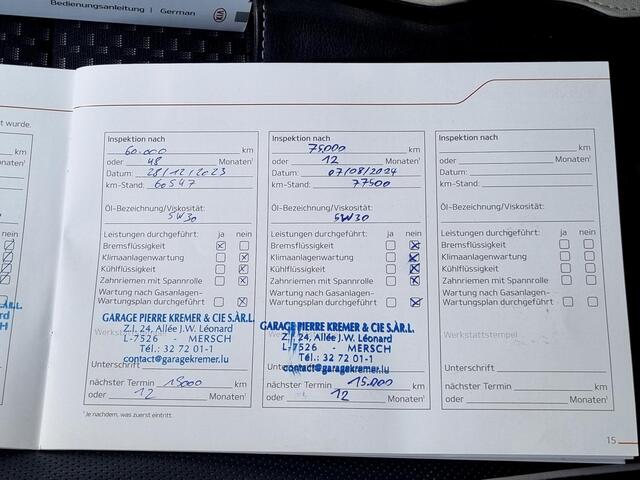 Bedienungsanleitung | German
KIA
t wurde.
km
Monaten¹
nein
Inspektion nach
60.000 km
oder 48 Monaten¹
Datum: 28/12/2023
km-Stand: 60547
Öl-Bezeichnung/Viskosität:
5W30
Leistungen durchgeführt: ja nein
Bremsflüssigkeit
Klimaanlagenwartung
Kühlflüssigkeit
Zahnriemen mit Spannrolle
Wartung nach Gasanlagen-
Wartungsplan durchgeführt
GARAGE PIERRE KREMER & CIE S.ÀR.L.
Z.I. 24, Allée J.W. Léonard
L-7526 - MERSCH
Tél.: 32 72 01-1
contact@garagekremer.lu
Unterschrift
nächster Termin 15000 km
oder 12 Monaten¹
Inspektion nach
75000 km
oder 12 Monaten¹
Datum: 07/08/2024
km-Stand: 77500
Öl-Bezeichnung/Viskosität:
5W30
Leistungen durchgeführt: ja nein
Bremsflüssigkeit
Klimaanlagenwartung
Kühlflüssigkeit
Zahnriemen mit Spannrolle
Wartung nach Gasanlagen-
Wartungsplan durchgeführt
GARAGE PIERRE KREMER & CIE S.ÀR.L.
Z.I. 24, Allée J.W. Léonard
L-7526 - MERSCH
Tél.: 32 72 01-1
contact@garagekremer.lu
Unterschrift
nächster Termin 15.000 km
oder 12 Monaten¹
Inspektion nach
km
oder Monaten¹
Datum:
km-Stand:
Öl-Bezeichnung/Viskosität:
Leistungen durchgeführt: ja nein
Bremsflüssigkeit
Klimaanlagenwartung
Kühlflüssigkeit
Zahnriemen mit Spannrolle
Wartung nach Gasanlagen-
Wartungsplan durchgeführt
Werkstattstempel
Unterschrift
nächster Termin km
oder Monaten¹
¹ Je nachdem, was zuerst eintritt.
15